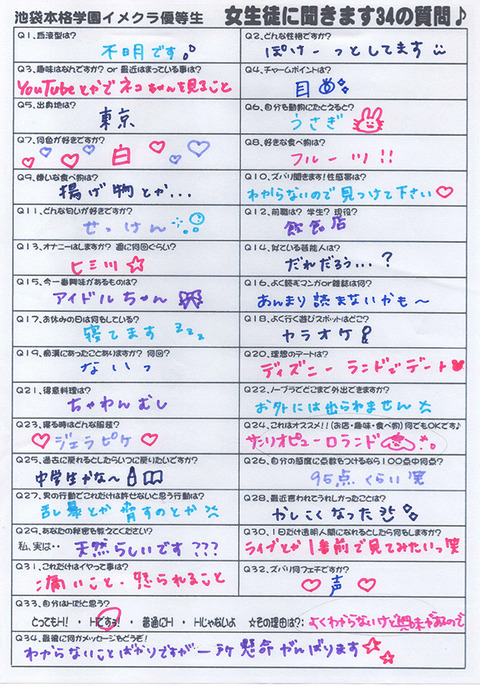 池袋本格学園イメクラ優等生 女生徒に聞きます34の質問♪
Q1.血液型は? Q2.どんな性格ですか?
不明です ぽけーっとしてます
Q3.趣味はなんですか? or 最近はまっている事は? Q4.チャームポイントは?
YouTubeとかでネコちゃんを見ること 目
Q5.出身地は? Q6.自分を動物にたとえると?
東京 うさぎ
Q7.何色が好きですか? Q8.好きな食べ物は?
白 フルーツ!!
Q9.嫌いな食べ物は? Q10.ズバリ聞きます!性感帯は?
揚げ物とか... わからないので見つけて下さい♡
Q11.どんな匂いが好きですか? Q12.前職は? 学生? 現役?
せっけん 飲食店
Q13.オナニーはしますか? 週に何回ぐらい? Q14.似ている芸能人は?
ヒミツ☆ だれだろう...?
Q15.今一番興味があるものは? Q16.よく読むマンガor雑誌は何?
アイドルちゃん あんまり読まないかも〜
Q17.お休みの日は何をしている? Q18.よく行く遊びスポットはどこ?
寝てます zzz カラオケ
Q19.痴漢にあったことありますか? 何回? Q20.理想のデートは?
ないっ ディズニーランドでデート
Q21.得意料理は? Q22.ノーブラでどこまで外出できますか?
ちゃわんむし お外には出られません
Q23.寝る時はどんな服装? Q24.これはオススメ!!(お店・趣味・食べ物)何でもOKです♪
♡ジェラピケ♡ サンリオピューロランド
Q25.過去に戻れるとしたらいつに戻りたいですか? Q26.自分の感度に点数をつけるなら100点中何点?
中学生かな〜 95点くらい笑
Q27.男の行動でこれだけは許せないと思う行動は? Q28.最近言われてうれしかったことは?
乱暴とか脅すのとか かしこくなった
Q29.あなたの秘密を教えてください? Q30.1日だけ透明人間になれるとしたら何をしますか?
私、実は・・ 天然らしいです??? ライブとか1番前で見てみたいっ笑
Q31.これだけはイヤって事は? Q32.ズバリ何フェチですか?
痛いこと・怒られること ♡声♡
Q33.自分はHだと思う?
とってもH! ・ Hですぅ! ・ 普通にH ・ Hじゃないよ ☆その理由は?: よくわからないけど興味があるので
Q34.最後に何かメッセージをどうぞ!
わからないことばかりですが一所懸命がんばります☆☆